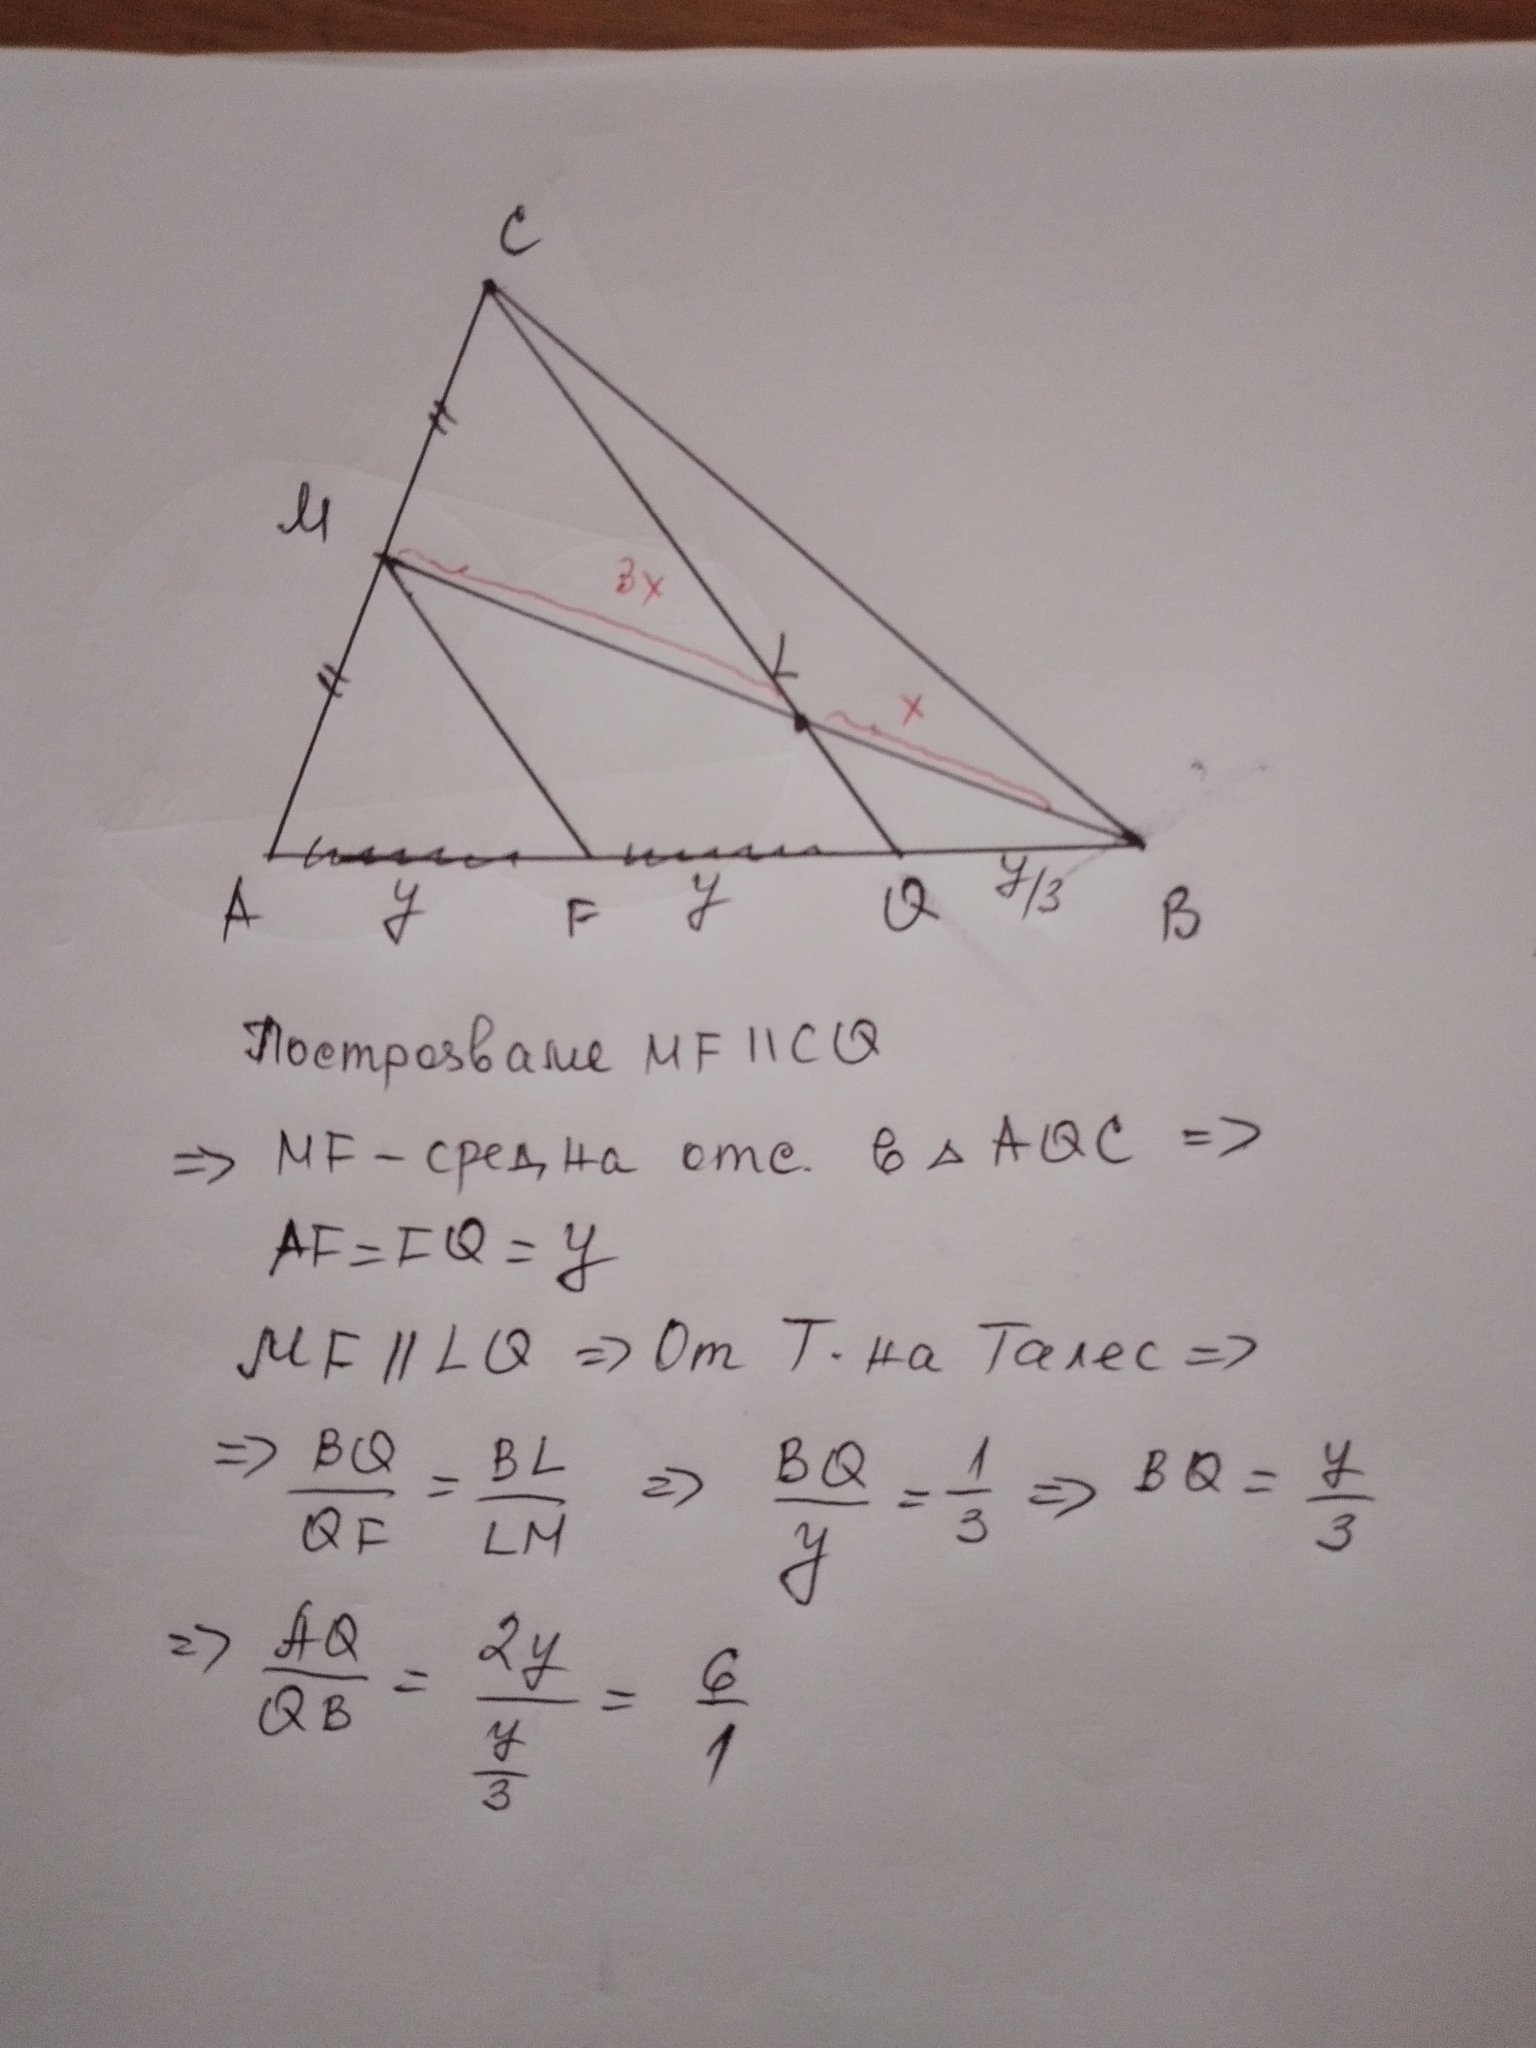 C
M
3x
L
x
A
y
F
y
Q
y/3
B
Построяваме MF || CQ
=> MF - средна отс. в △ AQC =>
AF = FQ = y
MF || LQ => От Т. на Талес =>
=> BQ/QF = BL/LM => BQ/y = 1/3 => BQ = y/3
=> AQ/QB = 2y/(y/3) = 6/1